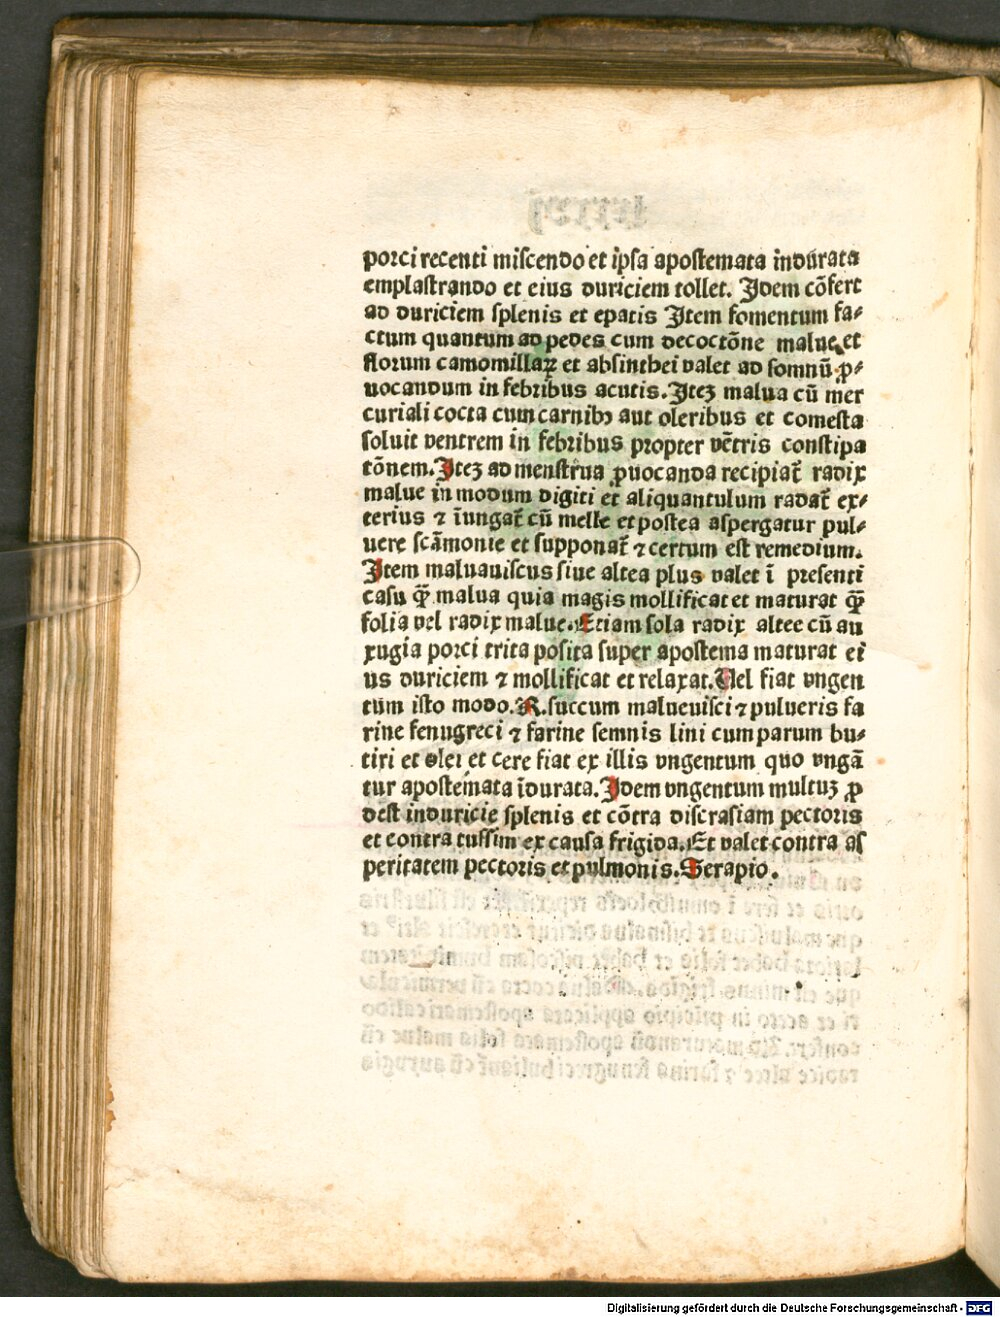 porci recenti miscendo et ip̄sa apostemata indurata
emplastrando et eius duriciem tollet. Idem cōfert
ad duriciem splenis et epatis Item fomentum fa⸗
ctum quantum ad pedes cum decoctōne malue et
florum camomillaꝝ et absinthei valet ad somnū ꝓ⸗
uocandum in febribus acutis. Iteꝫ malua cū mer
curiali cocta cum carnibꝰ aut oleribus et comesta
soluit ventrem in febribus propter vētris constipa
tōnem. Iteꝫ ad menstrua ꝓuocanda recipiat̄ radix
malue in modum digiti et aliquantulum radat̄ ex⸗
terius ⁊ īungat̄ cū melle et postea aspergatur pul⸗
uere scāmonie et supponat̄ ⁊ certum est remedium.
Item maluauiscus siue altea plus valet ī presenti
casu qꝫ̄ malua quia magis mollificat et maturat qꝫ̄
folia vel radix malue. Etiam sola radix altee cū au
xugia porci trita posita super apostema maturat ei
us duriciem ⁊ mollificat et relaxat. Vel fiat vngen
tum isto modo. R. succum malueuisci ⁊ pulueris fa
rine fenugreci ⁊ farine semnis lini cum parum bu⸗
tiri et olei et cere fiat ex illis vngentum quo vngā
tur apostemata īdurata. Idem vngentum multuꝫ ꝓ
dest induricie splenis et cōtra discrasiam pectoris
et contra tussim ex causa frigida. Et valet contra as
peritatem pectoris et pulmonis. Serapio.
Digitalisierung gefördert durch die Deutsche Forschungsgemeinschaft - DFG